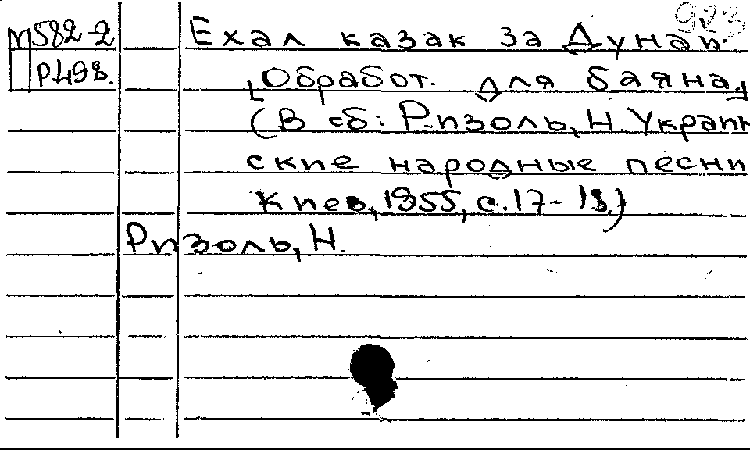 923
М582-2 Ехал казак за Дунай.
Р493. [Обработ. для баяна]
(В сб: Ризоль, Н. Украин
ские народные песни
Киев, 1955, с. 17-18.)
Ризоль, Н.